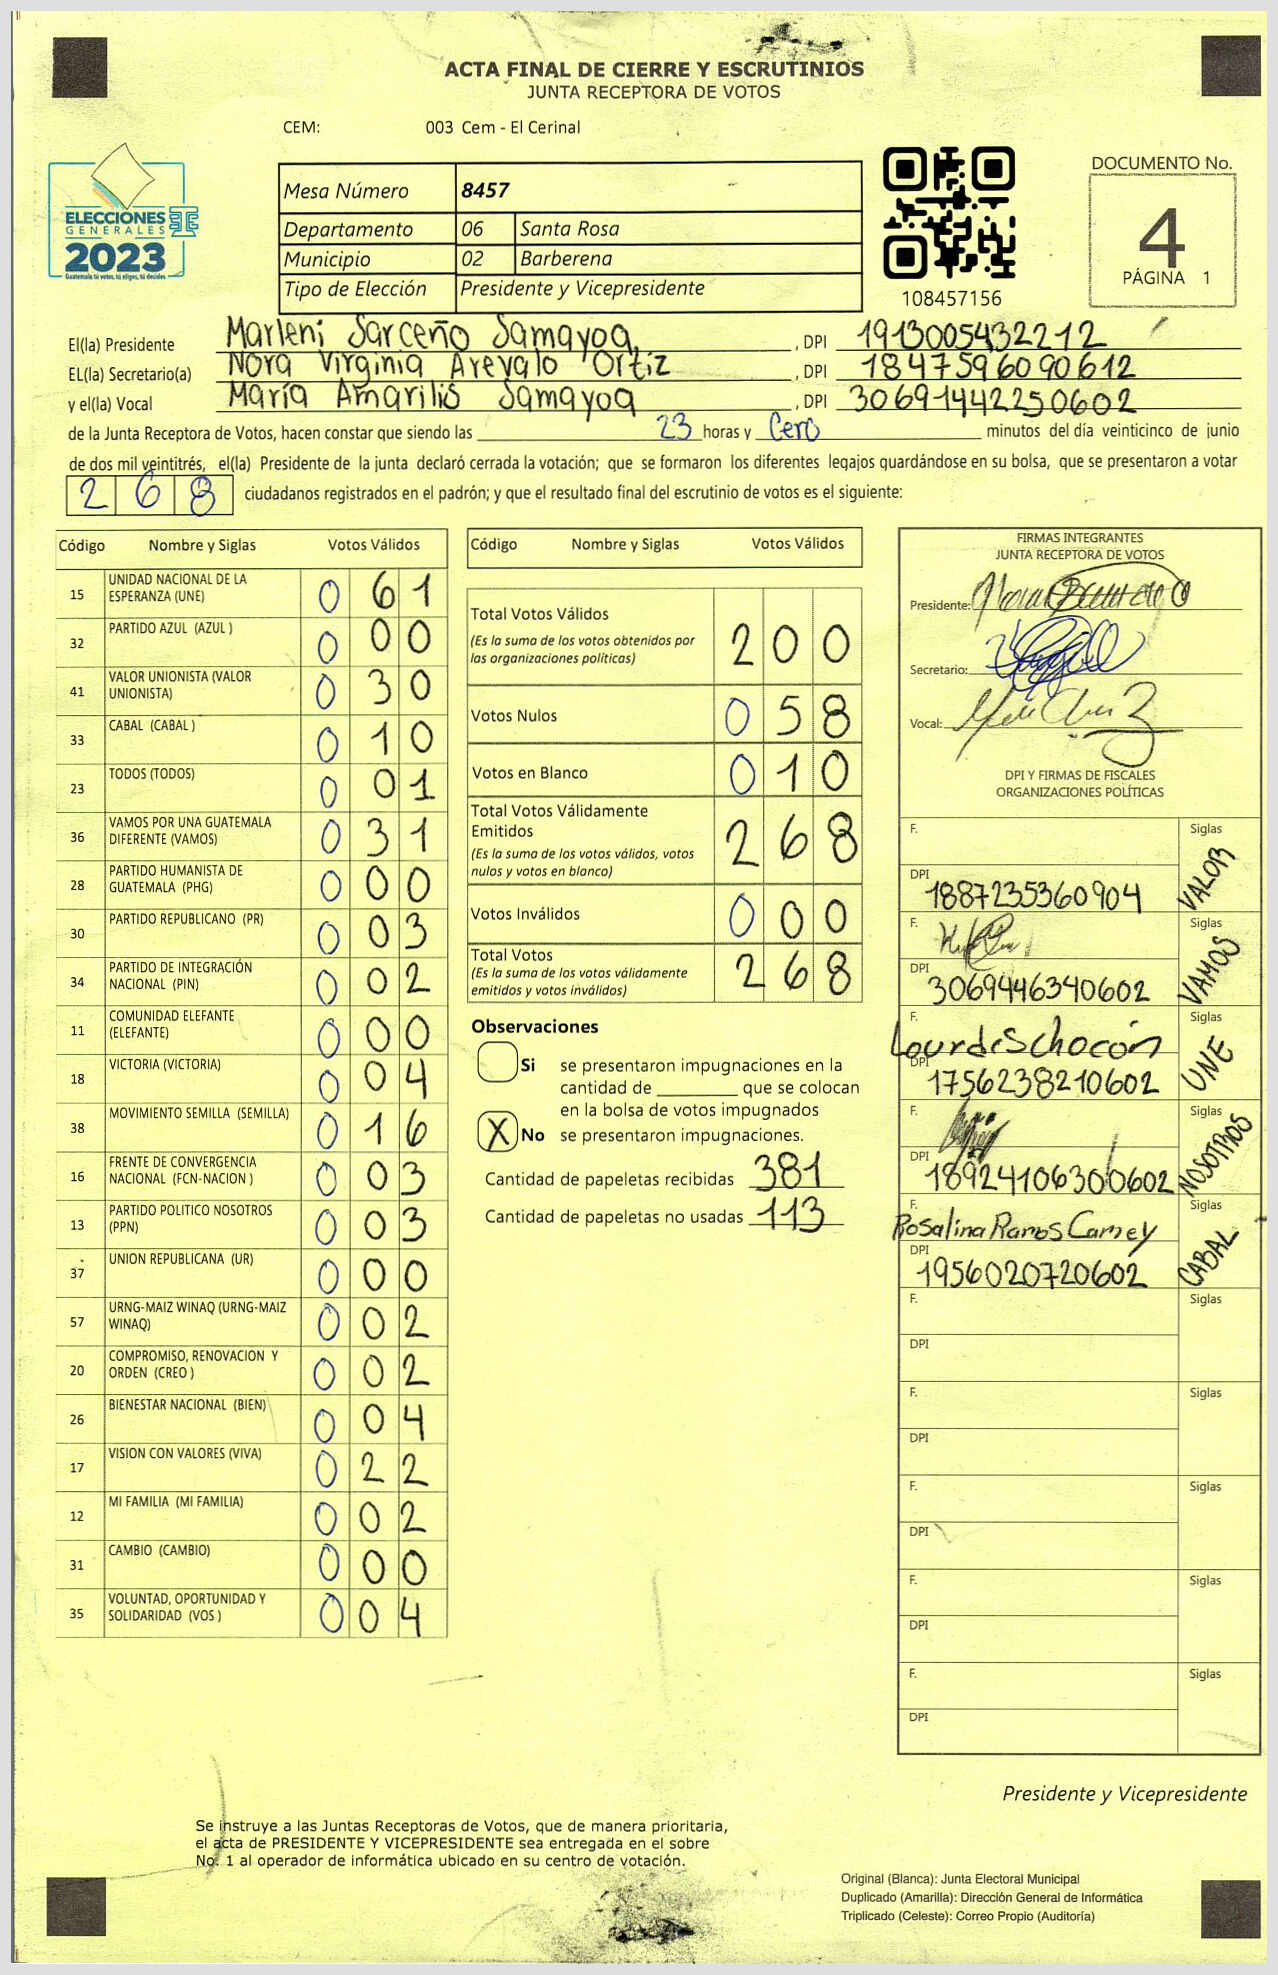 ACTA FINAL DE CIERRE Y ESCRUTINIOS
JUNTA RECEPTORA DE VOTOS
CEM: 003 Cem - El Cerinal
ELECCIONES
GENERALES
2023
Guatemala tú votas, tú eliges, tú decides
Mesa Número 8457
Departamento 06 Santa Rosa
Municipio 02 Barberena
Tipo de Elección Presidente y Vicepresidente
108457156
DOCUMENTO No.
4
PÁGINA 1
El(la) Presidente Marleni Sarceño Samayoa, , DPI 1913005432212
EL(la) Secretario(a) Nora Virginia Arevalo Ortiz , DPI 1847596090612
y el(la) Vocal María Amarilis Samayoa , DPI 3069144225 0602
de la Junta Receptora de Votos, hacen constar que siendo las 23 horas y Cero minutos del día veinticinco de junio
de dos mil veintitrés, el(la) Presidente de la junta declaró cerrada la votación; que se formaron los diferentes legajos guardándose en su bolsa, que se presentaron a votar
268 ciudadanos registrados en el padrón; y que el resultado final del escrutinio de votos es el siguiente:
Código Nombre y Siglas Votos Válidos
15 UNIDAD NACIONAL DE LA ESPERANZA (UNE) 0 6 1
32 PARTIDO AZUL (AZUL ) 0 0 0
41 VALOR UNIONISTA (VALOR UNIONISTA) 0 3 0
33 CABAL (CABAL ) 0 1 0
23 TODOS (TODOS) 0 0 1
36 VAMOS POR UNA GUATEMALA DIFERENTE (VAMOS) 0 3 1
28 PARTIDO HUMANISTA DE GUATEMALA (PHG) 0 0 0
30 PARTIDO REPUBLICANO (PR) 0 0 3
34 PARTIDO DE INTEGRACIÓN NACIONAL (PIN) 0 0 2
11 COMUNIDAD ELEFANTE (ELEFANTE) 0 0 0
18 VICTORIA (VICTORIA) 0 0 4
38 MOVIMIENTO SEMILLA (SEMILLA) 0 1 6
16 FRENTE DE CONVERGENCIA NACIONAL (FCN-NACION ) 0 0 3
13 PARTIDO POLITICO NOSOTROS (PPN) 0 0 3
37 UNION REPUBLICANA (UR) 0 0 0
57 URNG-MAIZ WINAQ (URNG-MAIZ WINAQ) 0 0 2
20 COMPROMISO, RENOVACION Y ORDEN (CREO ) 0 0 2
26 BIENESTAR NACIONAL (BIEN) 0 0 4
17 VISION CON VALORES (VIVA) 0 2 2
12 MI FAMILIA (MI FAMILIA) 0 0 2
31 CAMBIO (CAMBIO) 0 0 0
35 VOLUNTAD, OPORTUNIDAD Y SOLIDARIDAD (VOS ) 0 0 4
Código Nombre y Siglas Votos Válidos
Total Votos Válidos 2 0 0
(Es la suma de los votos obtenidos por
las organizaciones políticas)
Votos Nulos 0 5 8
Votos en Blanco 0 1 0
Total Votos Válidamente
Emitidos 2 6 8
(Es la suma de los votos válidos, votos
nulos y votos en blanco)
Votos Inválidos 0 0 0
Total Votos 2 6 8
(Es la suma de los votos válidamente
emitidos y votos inválidos)
Observaciones
Si se presentaron impugnaciones en la
cantidad de ________ que se colocan
en la bolsa de votos impugnados
X No se presentaron impugnaciones.
Cantidad de papeletas recibidas 381
Cantidad de papeletas no usadas 113
FIRMAS INTEGRANTES
JUNTA RECEPTORA DE VOTOS
Presidente:
Secretario:
Vocal:
DPI Y FIRMAS DE FISCALES
ORGANIZACIONES POLÍTICAS
F. Siglas VALOR
DPI 1887235360904
F. Siglas VAMOS
DPI 3069446340602
F. Lourdes Chocón Siglas UNE
DPI 1756238210602
F. Siglas NOSOTROS
DPI 1892410630602
F. Rosalina Ramos Camey Siglas CABAL
DPI 1956020720602
F. Siglas
DPI
F. Siglas
DPI
F. Siglas
DPI
F. Siglas
DPI
F. Siglas
DPI
Presidente y Vicepresidente
Se instruye a las Juntas Receptoras de Votos, que de manera prioritaria,
el acta de PRESIDENTE Y VICEPRESIDENTE sea entregada en el sobre
No. 1 al operador de informática ubicado en su centro de votación.
Original (Blanca): Junta Electoral Municipal
Duplicado (Amarilla): Dirección General de Informática
Triplicado (Celeste): Correo Propio (Auditoría)